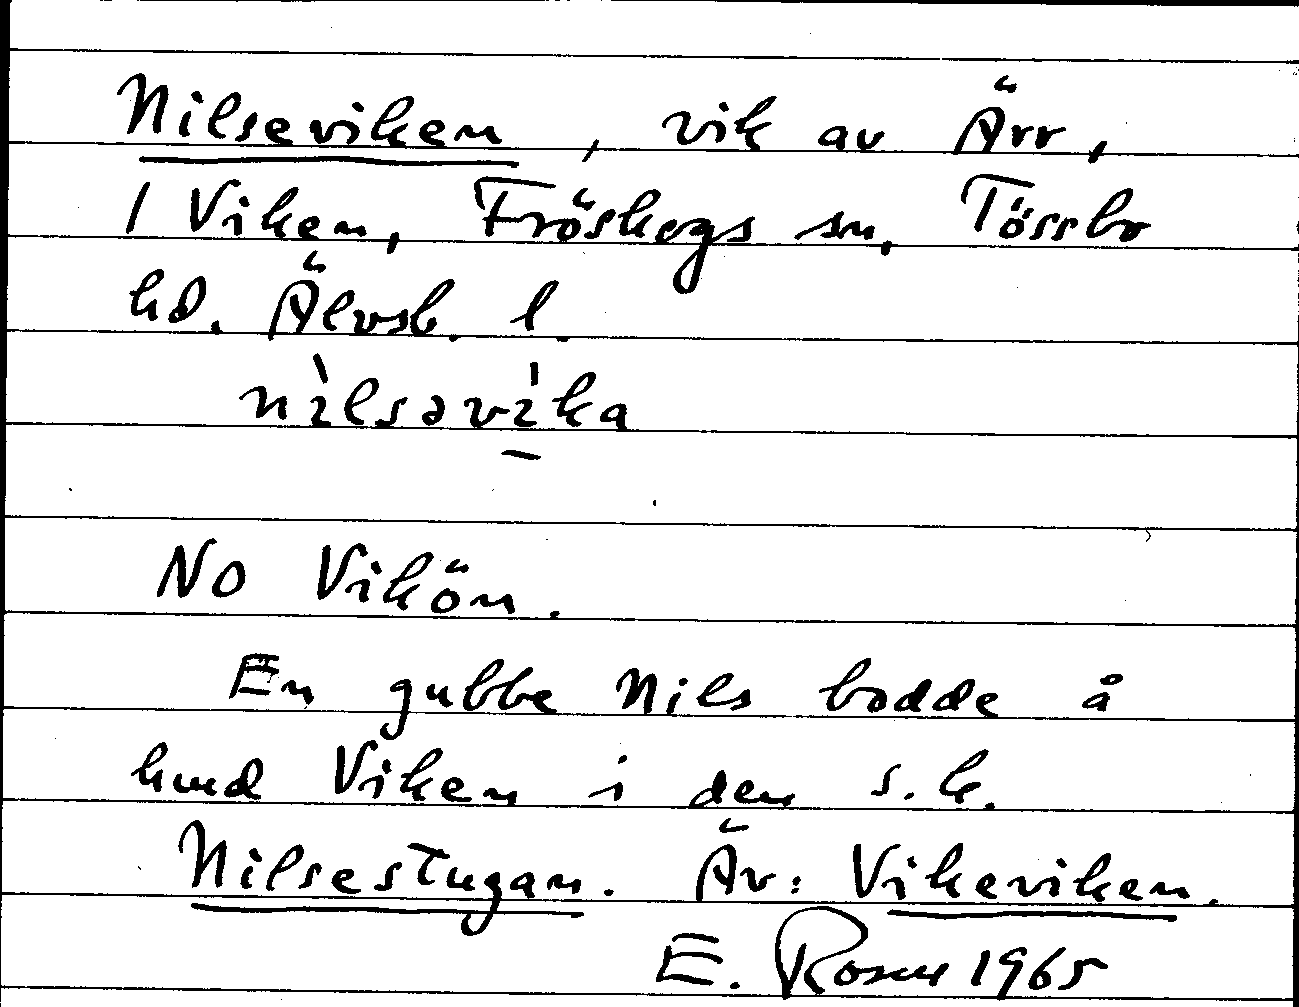 Nilseviken, vik av Ärr,
1 Viken, Fröskogs sn, Tössbo
hd. Älvsb. l.
nìlsəvìka
NO Vikön.
En gubbe Nils bodde å
hmd Viken i den s.k.
Nilsestugan. Äv: Vikeviken.
E. Rosen 1965